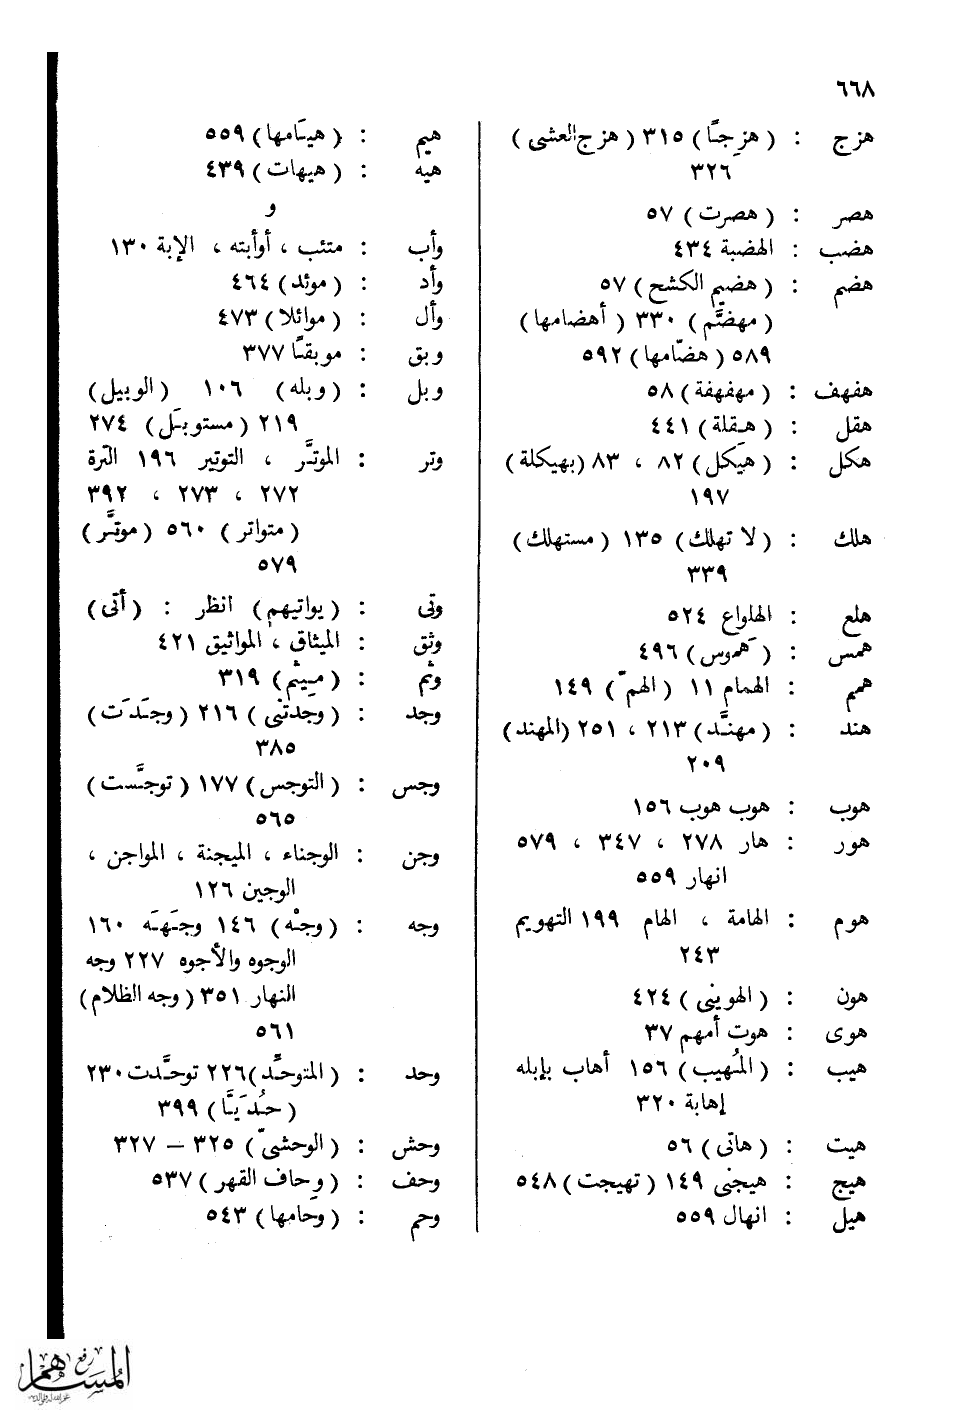 ٦٦٨
هزج : ( هزِجًا) ٣١٥ ( هزج العشى )
٣٢٦
هصر : ( هصرت ) ٥٧
هضب : الهضبة ٤٣٤
هضم : ( هضيم الكشح ) ٥٧
( مهضَّم) ٣٣٠ ( أهضامها )
٥٨٩ ( هضّامها) ٥٩٢
هفهف : ( مهفهفة ) ٥٨
هقل : ( هقلة ) ٤٤١
هكل : ( هيكل ) ٨٢ ، ٨٣ (بهيكلة )
١٩٧
هلك : ( لا تهلك ) ١٣٥ ( مستهلك )
٣٣٩
هلع : الهلواع ٥٢٤
همس : ( هَموس ) ٤٩٦
همم : الهمام ١١ ( الهمّ ) ١٤٩
هند : ( مهنَّد) ٢١٣ ، ٢٥١ (المهند )
٢٠٩
هوب : هوب هوب ١٥٦
هور : هار ٢٧٨ ، ٣٤٧ ، ٥٧٩
انهار ٥٥٩
هوم : الهامة ، الهام ١٩٩ التهويم
٢٤٣
هون : ( الهوينى ) ٤٢٤
هوى : هوت أمهم ٣٧
هيب : ( المُهيب ) ١٥٦ أهاب بإبله
إهابة ٣٢٠
هيت : ( هاتى ) ٥٦
هيج : هيجنى ١٤٩ ( تهيجت ) ٥٤٨
هيل : انهال ٥٥٩
هيم : ( هيَامها ) ٥٥٩
هيه : ( هيهات ) ٤٣٩
و
وأب : متئب ، أوأبته ، الإبة ١٣٠
وأد : ( موئد ) ٤٦٤
وأل : ( موائلا ) ٤٧٣
وبق : موبقًا ٣٧٧
وبل : ( وبله ) ١٠٦ ( الوبيل )
٢١٩ ( مستوبَل ) ٢٧٤
وتر : الموتَّر ، التوتير ١٩٦ الترة
٢٧٢ ، ٢٧٣ ، ٣٩٢
( متواتر ) ٥٦٠ ( موتَّر )
٥٧٩
وتى : ( يواتيهم ) انظر : ( أتى )
وثق : الميثاق ، المواثيق ٤٢١
وثم : ( مِيثم ) ٣١٩
وجد : ( وجدتنى ) ٢١٦ ( وجَدَت )
٣٨٥
وجس : ( التوجس ) ١٧٧ ( توجَّست )
٥٦٥
وجن : الوجناء ، الميجنة ، المواجن ،
الوجين ١٢٦
وجه : ( وجْه ) ١٤٦ وجَهَه ١٦٠
الوجوه والأجوه ٢٢٧ وجه
النهار ٣٥١ ( وجه الظلام )
٥٦١
وحد : ( المتوحِّد ) ٢٢٦ توحَّدت ٢٣٠
( حُدَيَّا ) ٣٩٩
وحش : ( الوحشىّ ) ٣٢٥ – ٣٢٧
وحف : ( وحاف القهر ) ٥٣٧
وحم : ( وحَامها ) ٥٤٣
رفع
المساهم